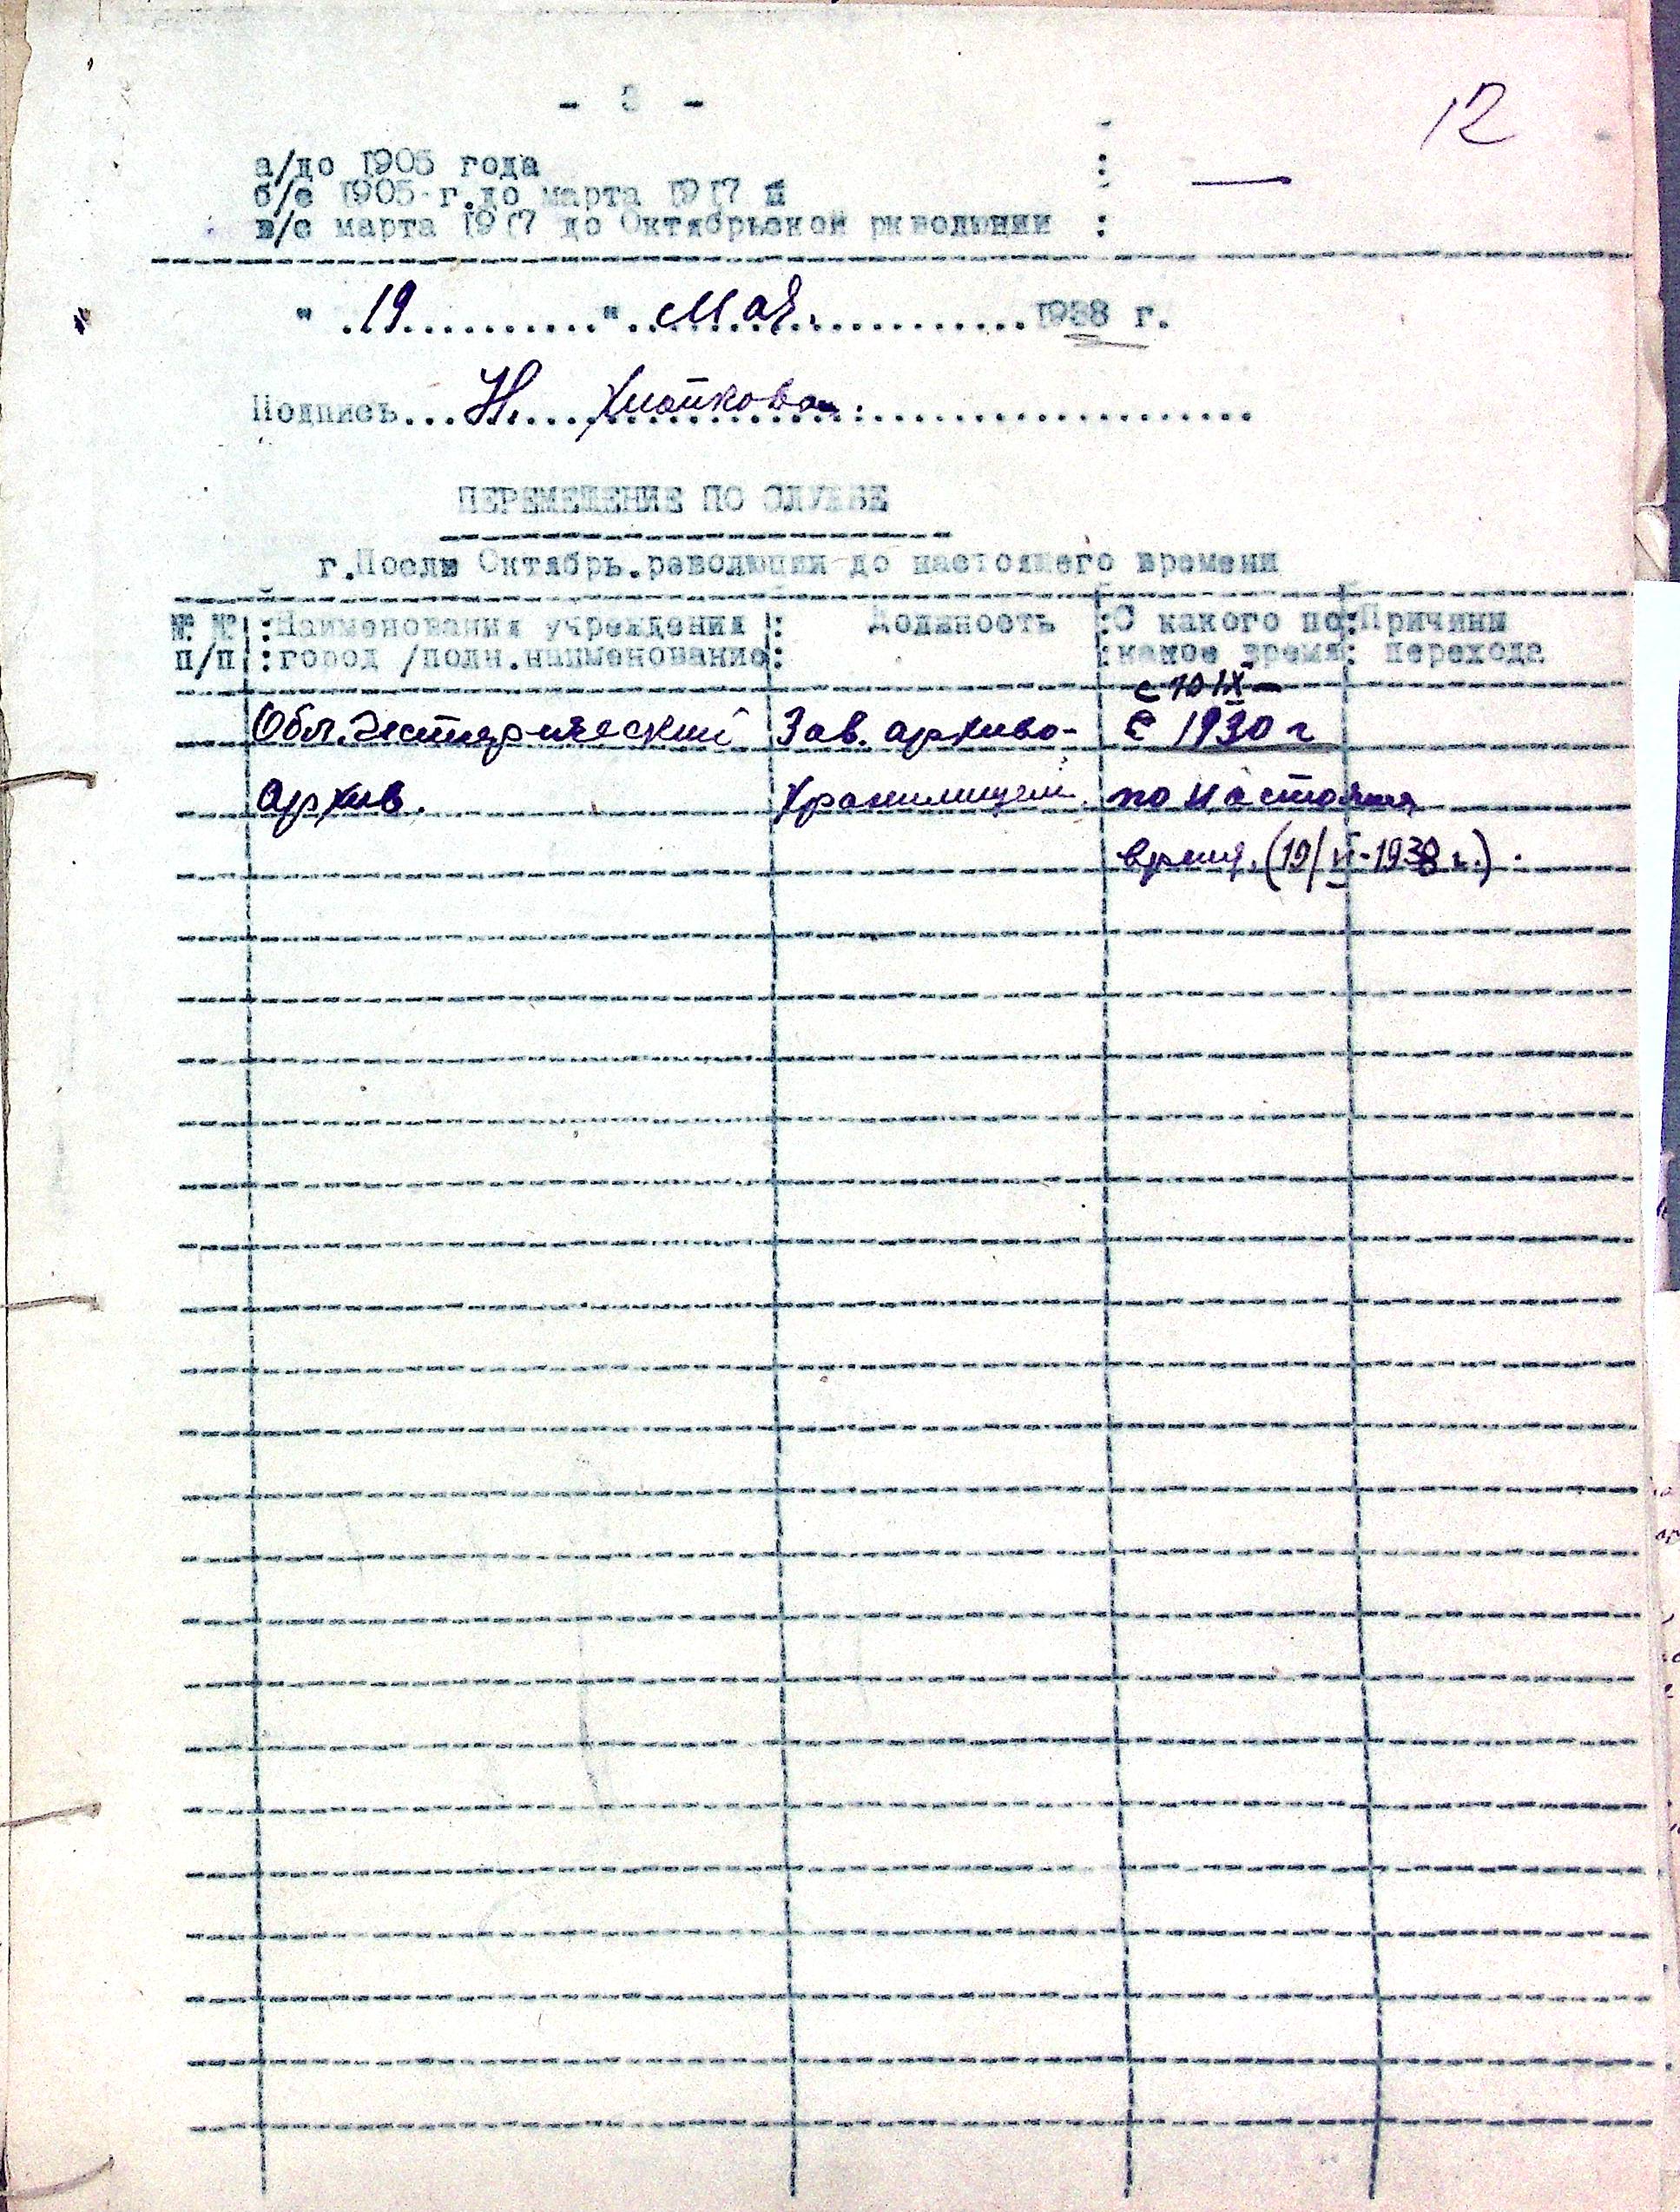 - 3 -
12
а/до 1905 года :
б/с 1905 г.до марта 1917 : —
в/с марта 1917 до Октябрьской риволюции :
" .19.........." ..Мая....................1938 г.
Подпись...Н....................
ПЕРЕМЕЩЕНИЕ ПО СЛУЖБЕ
г.После Октябрь.революции до настоящего времени
№ № :Наименования учреждения : Должность :С какого по:Причины
п/п :город /полн.наименование: :какое время: перехода
с 10 IX —
Обл. Исторический Зав. архиво- с 1930 г
Архив. хранилищем. по настоящ
время. (19/V-1938 г.).